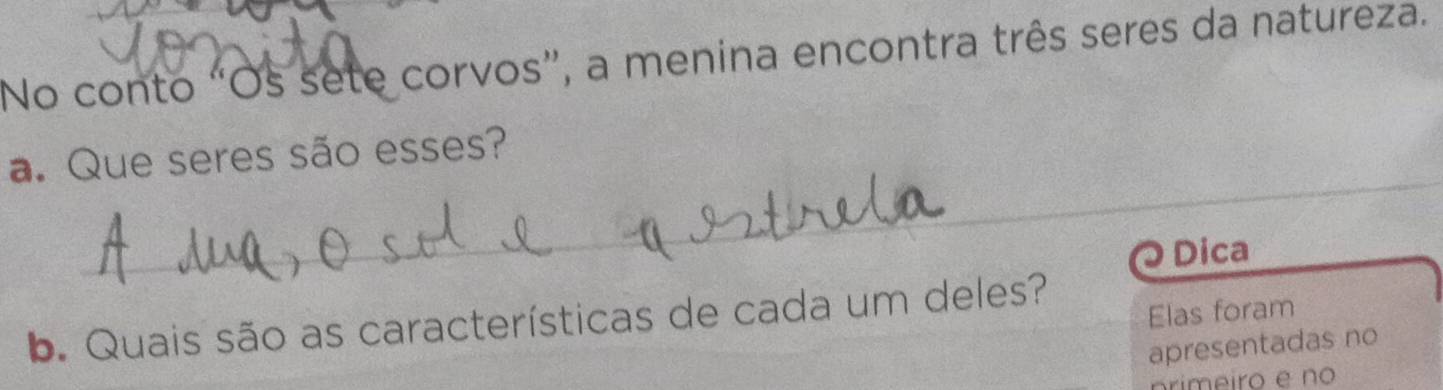 No conto "Os sete corvos", a menina encontra três seres da natureza.
a. Que seres são esses?
A lua, o sol e a estrela
Dica
b. Quais são as características de cada um deles?
Elas foram
apresentadas no
primeiro e no